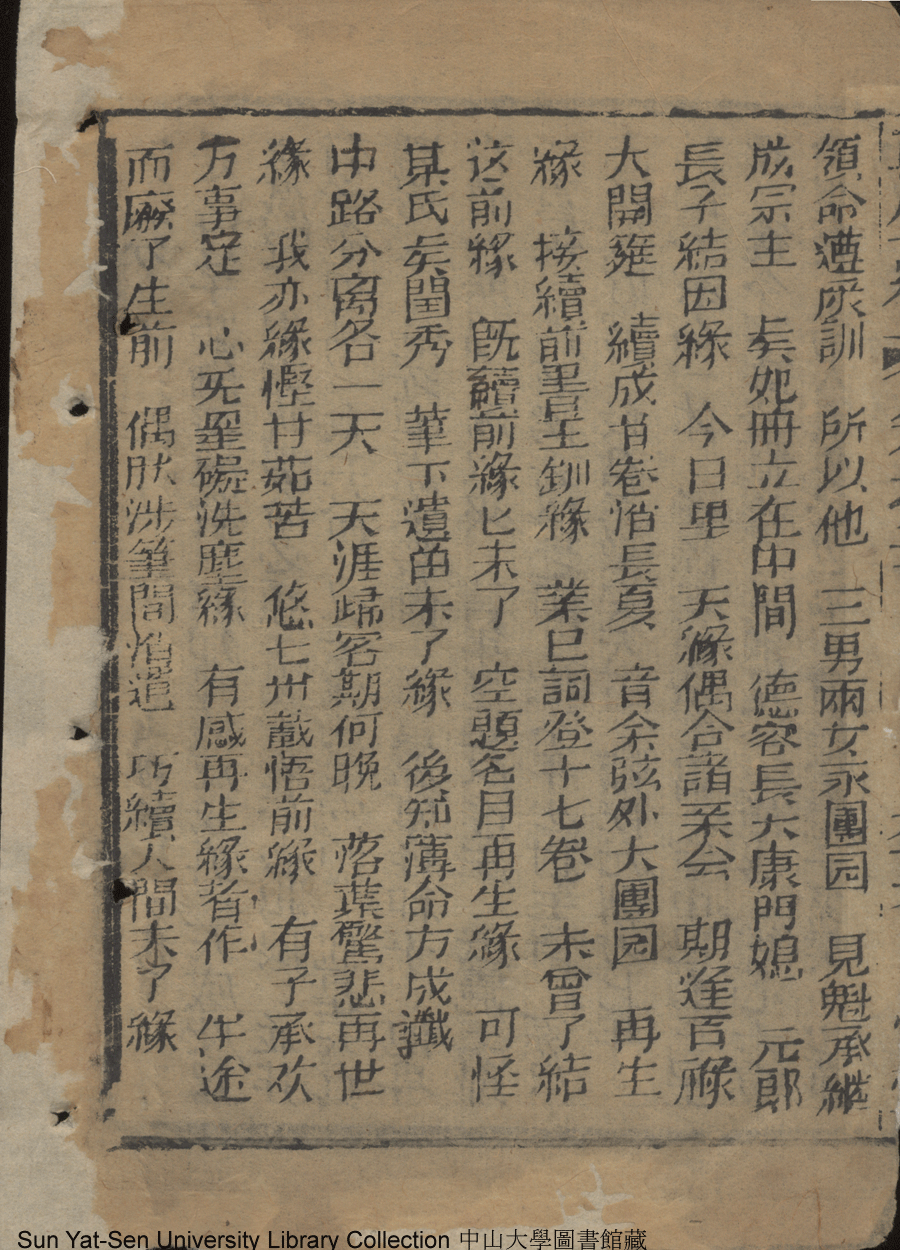 領命遵嚴訓　所以他　三男兩女永團园　見魁承繼
成宗主　矣妃冊立在中間　德容長大康門媳　元郎
長子結因緣　今日里　天緣偶合諸釆公　期逢百祿
大開筵　續成廿卷消長夏　音余弦外大團园　再生
緣　接續前書玉釧緣　業已詞登十七卷　未曾了結
这前緣　既續前緣匕未了　空題名目再生緣　可怪
某氏矣閨秀　筆下遺苗未了緣　後知薄命方成讖
中路分离各一天　天涯歸客期何晚　落葉驚悲再世
緣　我亦緣慳甘茹苦　悠七卅載悟前緣　有子承欢
万事定　心无罣碍洗塵緣　有感再生緣者作　半途
而廢了生前　偶肰涉筆間消遣　巧續人間未了緣
Sun Yat-Sen University Library Collection 中山大學圖書館藏